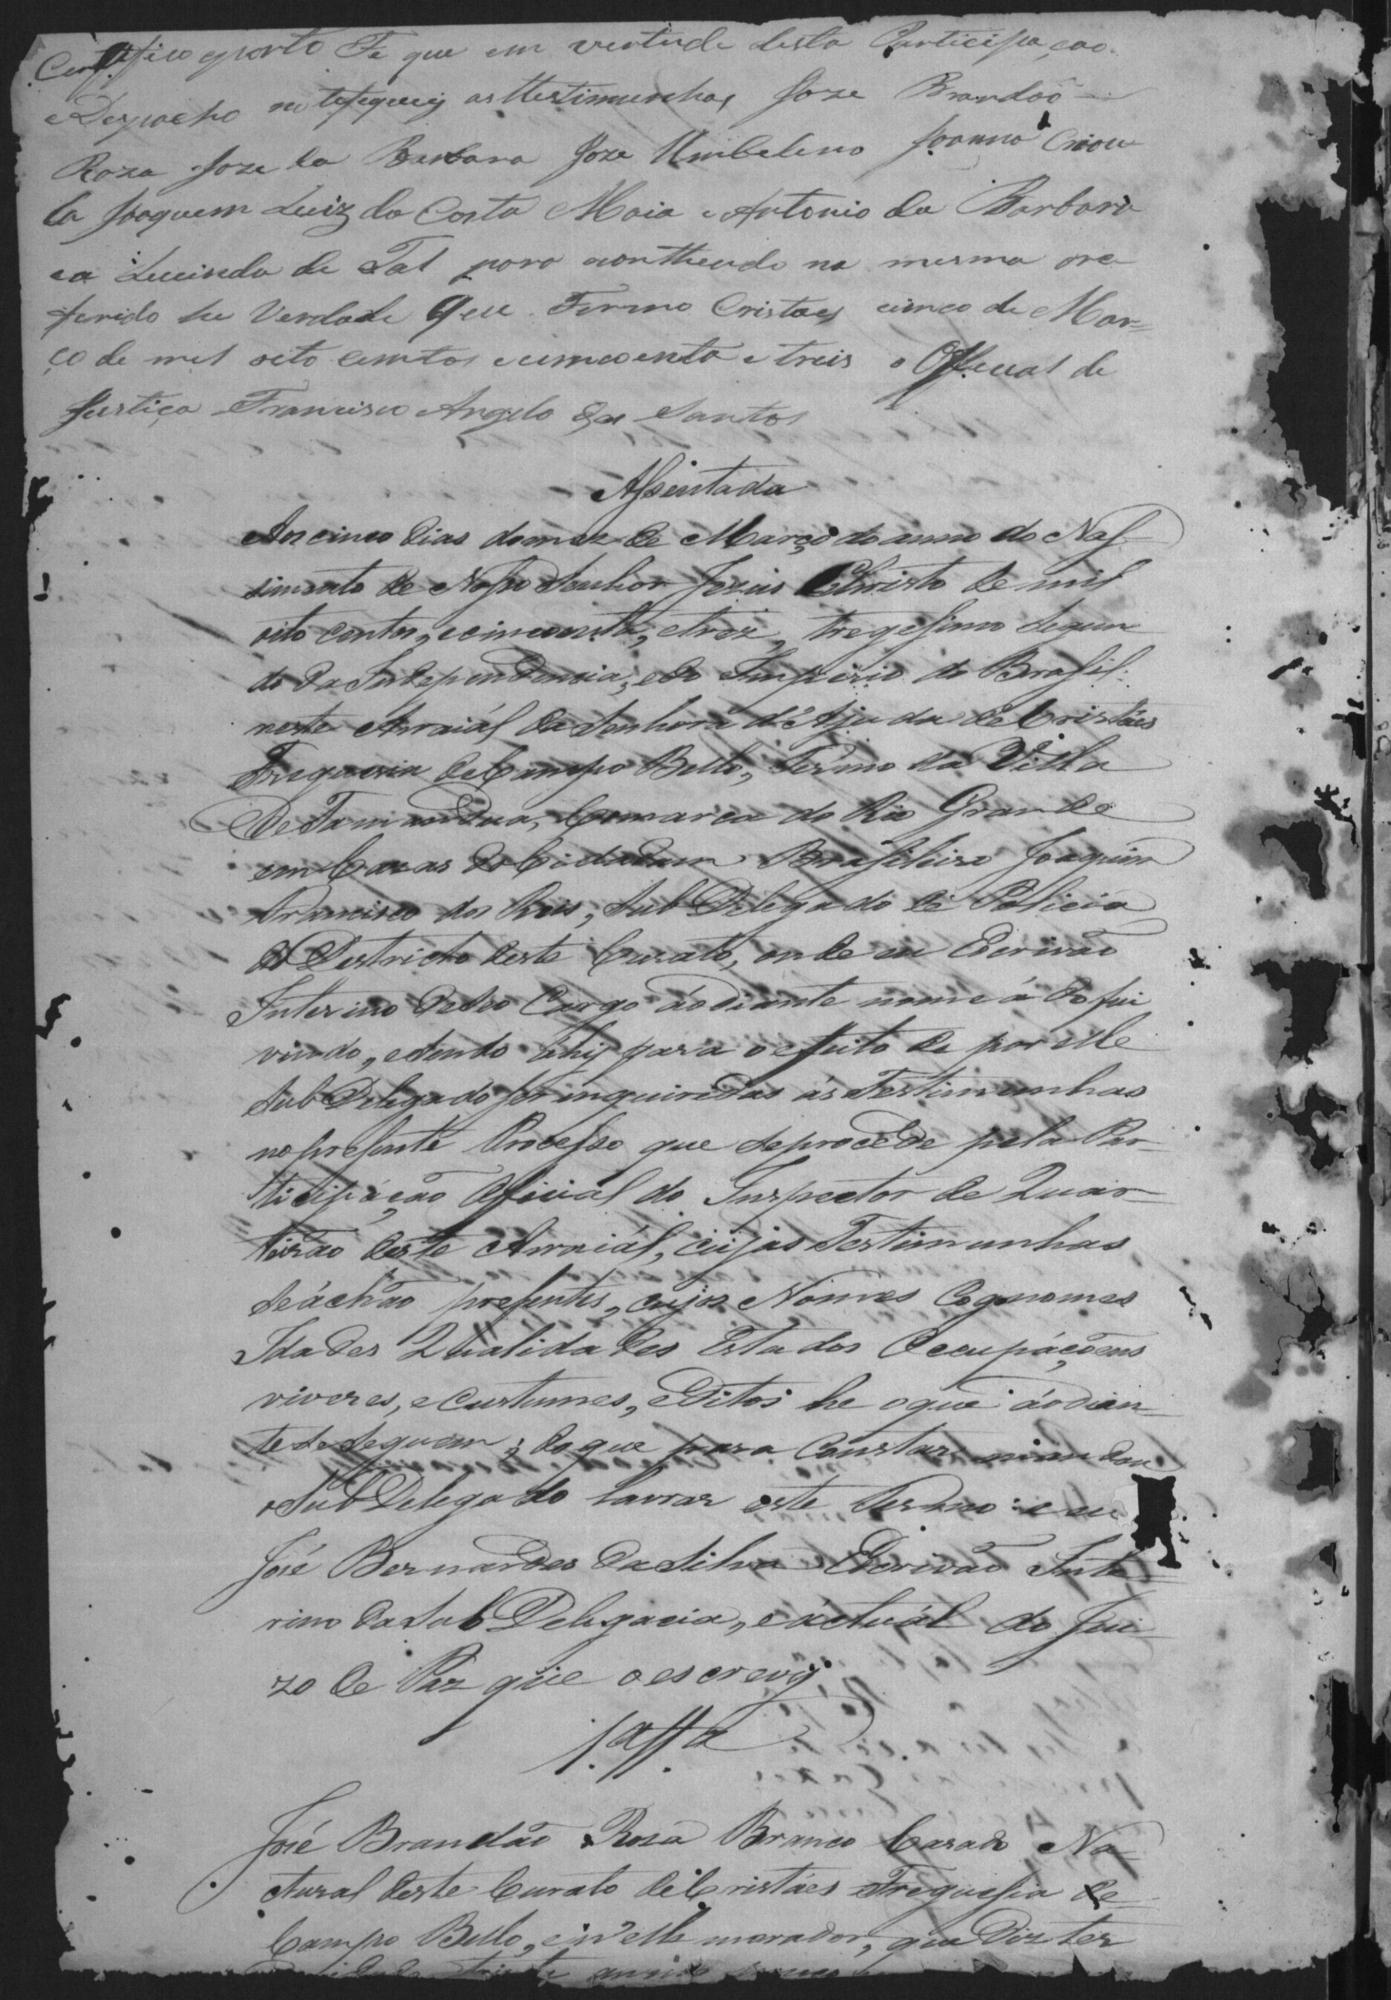 Certifico e porto Fe que em vertude desta Participaçao
e Despacho notefiquei as Testimunhas Joze Brandaõ
Roza Joze da Barbara Joze Umbeleno Joanna Criou
la Joaquem Luiz da Costa Maia e Antonio da Barbara
ea Lucinda de Tal para contheudo na mesma o re
ferido he Verdade Que Firmo Cristaes cimco de Mar=
ço de mil oito centos e cimcoenta e treis o Offecial de
Justiça Francisco Angelo dos Santos
Assentada
Aos cinco dias do mez de Março do anno do Nas
simento de Nosso Senhor Jezus Christo de mil
oito centos, e cincoenta, e trez, tregessimo segun
do da Independencia, e do Imperio do Brasil
neste Arraiál da Senhora d'Ajuda de Cristáes
Freguesia de Campo Bello, Termo da Villa
de Tamanduá, Comarca do Rio Grande
em Cazas do Cidadam Brasileiro Joaquim
Francisco dos Reis, Sub Delegado de Policia
do Destricto deste Curato, onde eu Escrivaõ
Interino de seo Cargo áodiante nomeádo fui
vindo, e sendo áhi para o efeito de por elle
Sub Delegado ser inqueridas ás Testimunhas
no presente Processo que se procede pela Par-
ticipáção Oficial do Inspector de Quar-
teirão deste Arraiál, cujas Testimunhas
se áchão presentes, cujos Nomes Cognomes
Idades Qualidades Estados Occupáçoens
viveres, e custumes, e Ditos he o que áodian-
te se seguem; do que para Constar mandou
o Sub Delegado lavrar este Termo: e eu
José Bernardes da Silva Escrivaõ Inte
rino da Sub Delegacia, e áctuál do Jui
zo de Paz que o escrevy
José Brandão Roza Branco Cazado Na-
tural deste Curato de Cristáes Freguesia de
Campo Bello, e n'elle morador, que diz ter